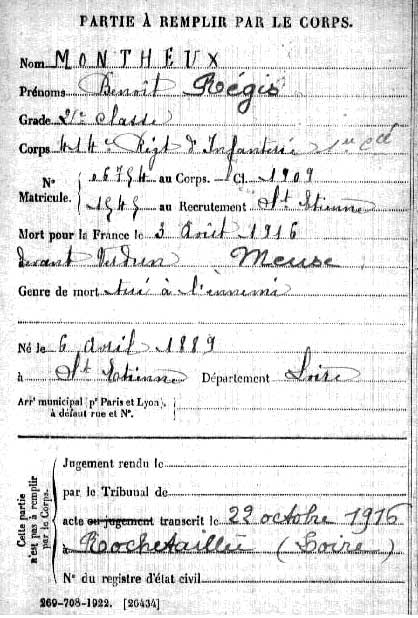 PARTIE À REMPLIR PAR LE CORPS.
Nom MONTHEUX
Prénoms Benoît Régis
Grade 2e classe
Corps 414e Régt d'Infanterie 1re Cie
N° Matricule. 06794 au Corps. — Cl. 1909
1545 au Recrutement St Etienne
Mort pour la France le 3 Août 1916
devant Verdun Meuse
Genre de mort tué à l'ennemi
Né le 6 Avril 1889
à St Etienne Département Loire
Arrt municipal (pr Paris et Lyon),
à défaut rue et N°.
Cette partie n'est pas à remplir par le Corps.
Jugement rendu le
par le Tribunal de
acte ou jugement transcrit le 22 octobre 1916
à Rochetaillée (Loire)
N° du registre d'état civil
269-708-1922. [26434]